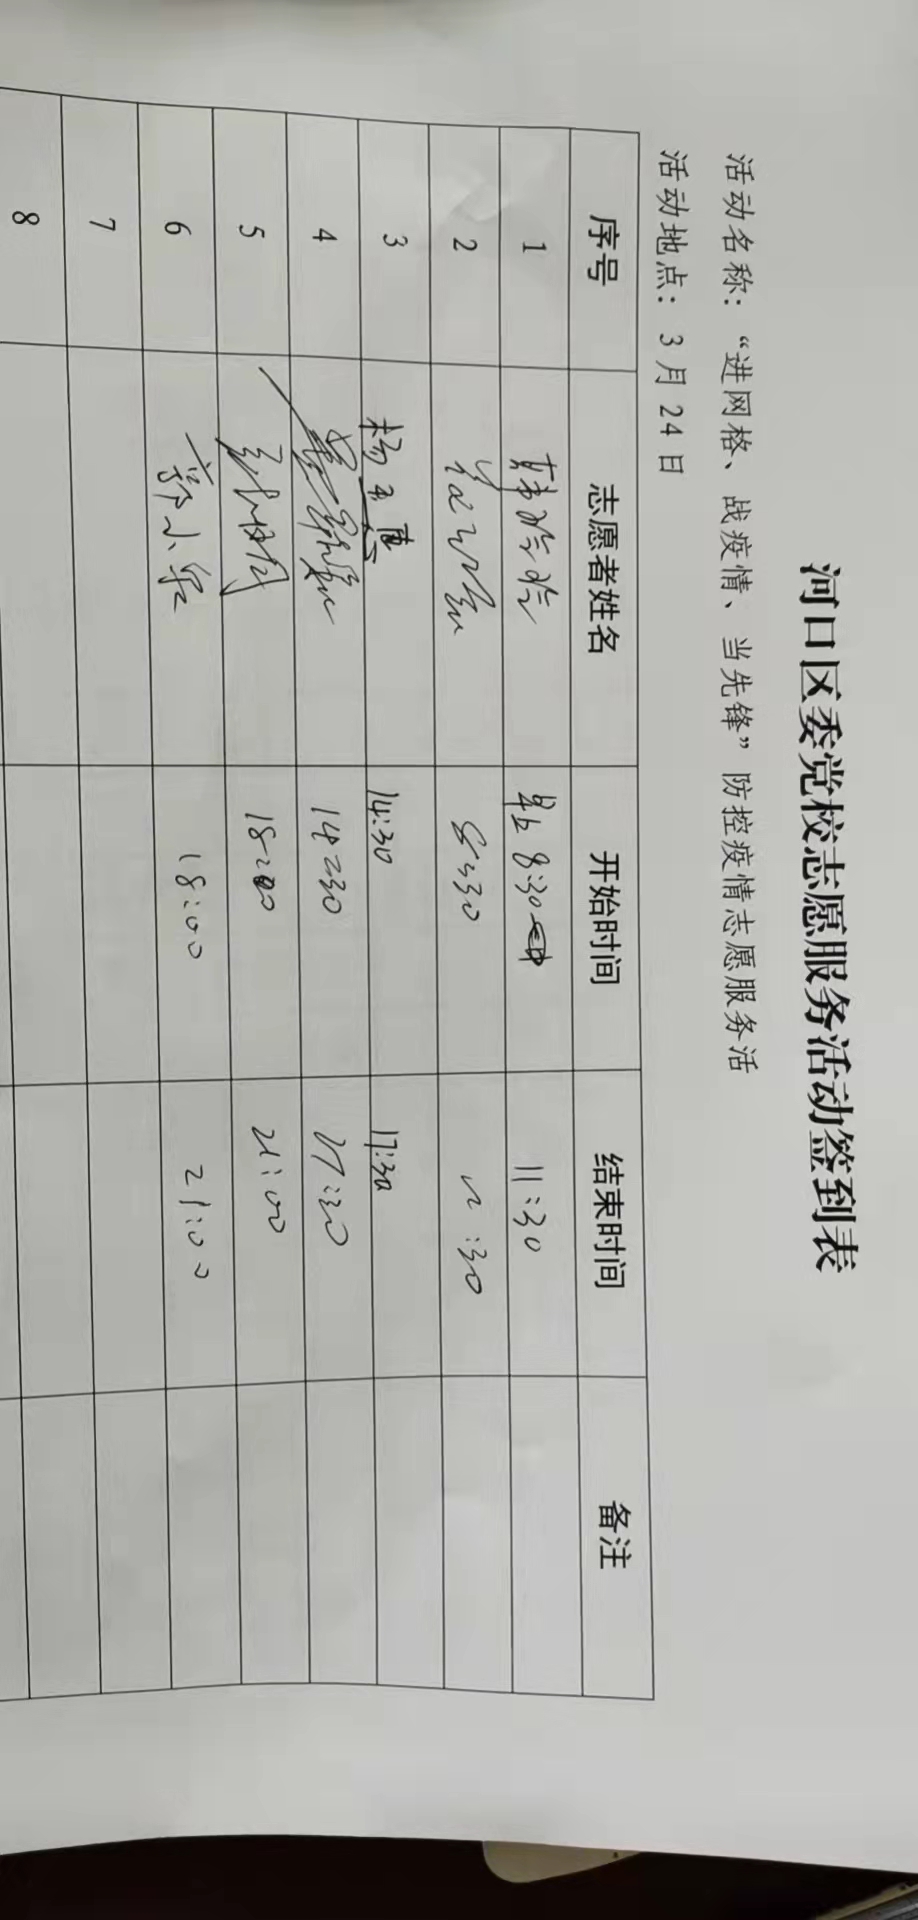 河口区委党校志愿服务活动签到表
活动名称：“进网格、战疫情、当先锋”防控疫情志愿服务活
活动地点：3月24日
序号 志愿者姓名 开始时间 结束时间 备注
1 韩玲玲 早上 8:30 11:30
2 8:30 :30
3 杨玉惠 14:30 17:30
4 14:30 17:30
5 18:00 21:00
6 小军 18:00 21:00
7
8